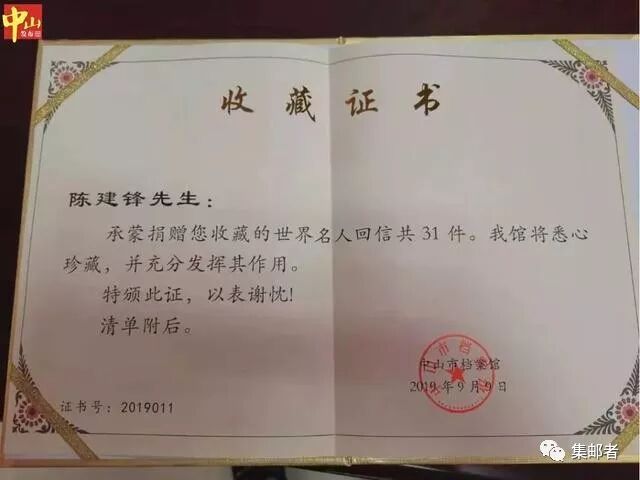 中山
发布
收藏证书
陈建锋先生：
承蒙捐赠您收藏的世界名人回信共31件。我馆将悉心
珍藏，并充分发挥其作用。
特颁此证，以表谢忱！
清单附后。
中山市档案馆
2019年9月9日
证书号：2019011
集邮者